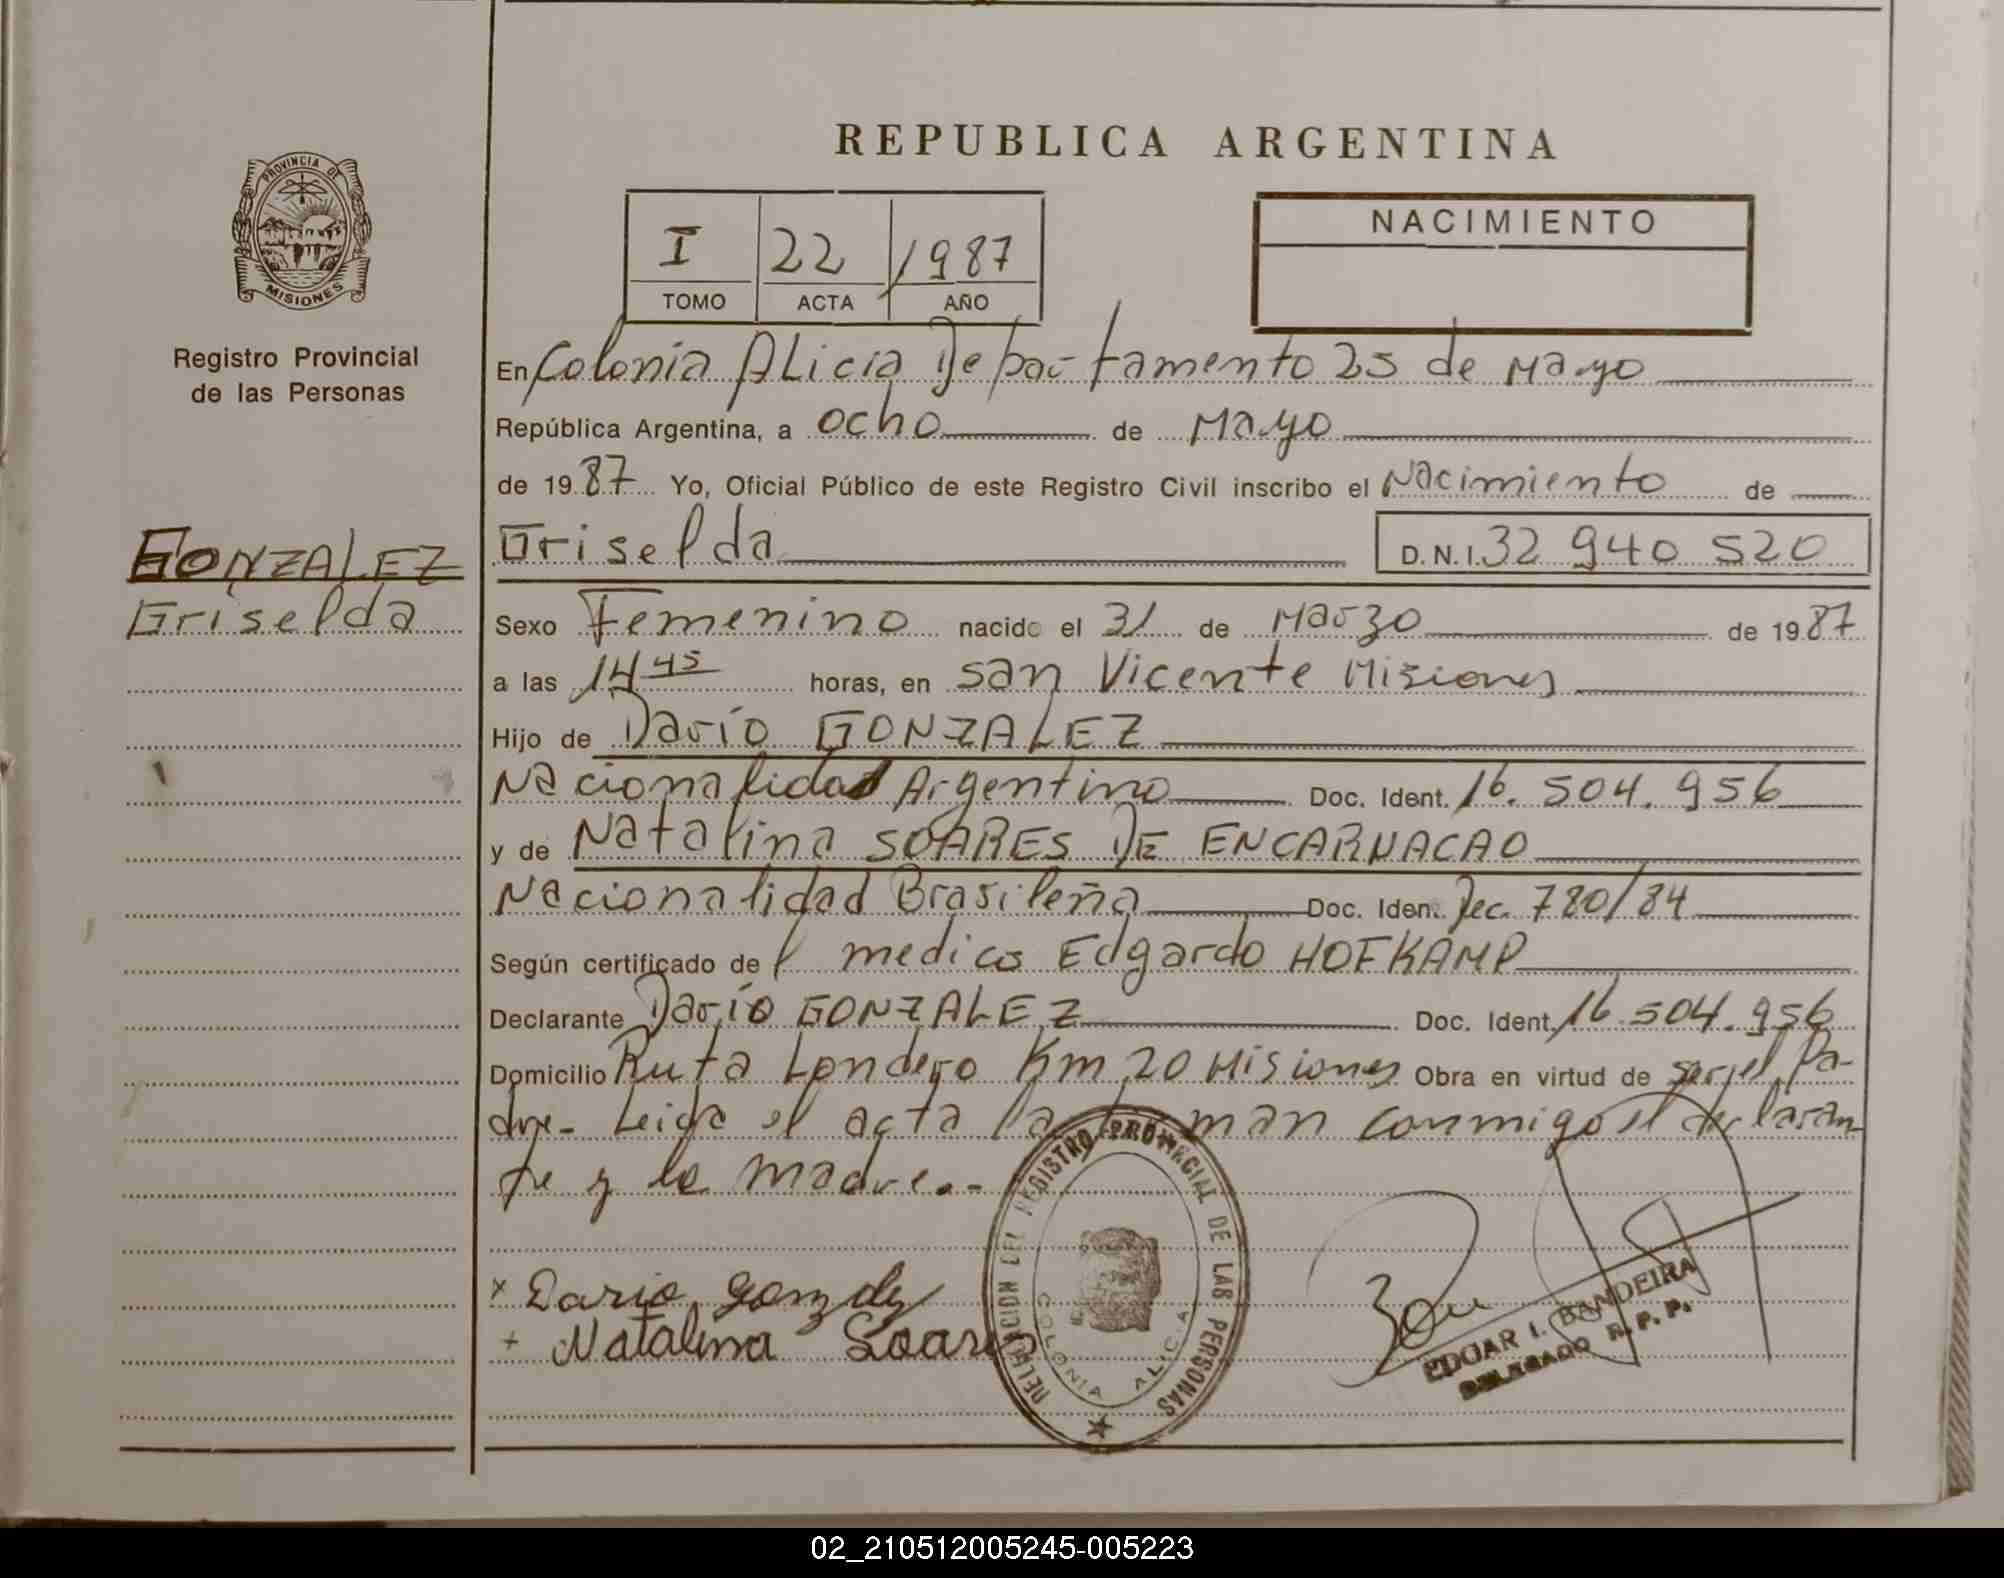 PROVINCIA DE
MISIONES
Registro Provincial
de las Personas
GONZALEZ
Griselda
REPUBLICA ARGENTINA
I 22 1987
TOMO ACTA AÑO
NACIMIENTO
En Colonia Alicia Departamento 25 de Mayo
República Argentina, a ocho de Mayo
de 1987 Yo, Oficial Público de este Registro Civil inscribo el Nacimiento de
Griselda D.N.I. 32 940 520
Sexo Femenino nacido el 31 de Marzo de 1987
a las 14 45 horas, en San Vicente Misiones
Hijo de Darío GONZALEZ
Nacionalidad Argentino Doc. Ident. 16.504.956
y de Natalina SOARES DE ENCARNACAO
Nacionalidad Brasileña Doc. Iden. Dec. 780/84
Según certificado del medico Edgardo HOFKAMP
Declarante Darío GONZALEZ Doc. Ident. 16.504.956
Domicilio Ruta Londero Km 20 Misiones Obra en virtud de ser el Pa-
dre- Leida el acta la man conmigo el declaran-
te y la madre.-
x Dario Gonzalez
+ Natalina Soares
DELEGACION DEL REGISTRO PROVINCIAL DE LAS PERSONAS
COLONIA ALICIA
EDGAR I. BANDEIRA
DELEGADO R.P.P.
02_210512005245-005223